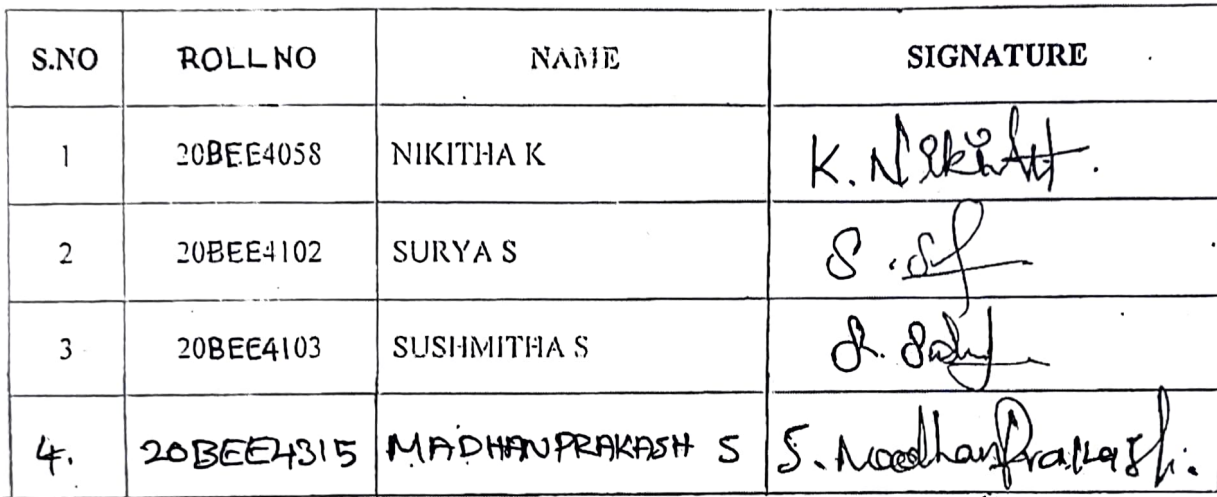 S.NO ROLL NO NAME SIGNATURE
1 20BEE4058 NIKITHA K K. Nikitha.
2 20BEE4102 SURYA S S.
3 20BEE4103 SUSHMITHA S S.
4. 20BEE4315 MADHANPRAKASH S S. MadhanPrakash.